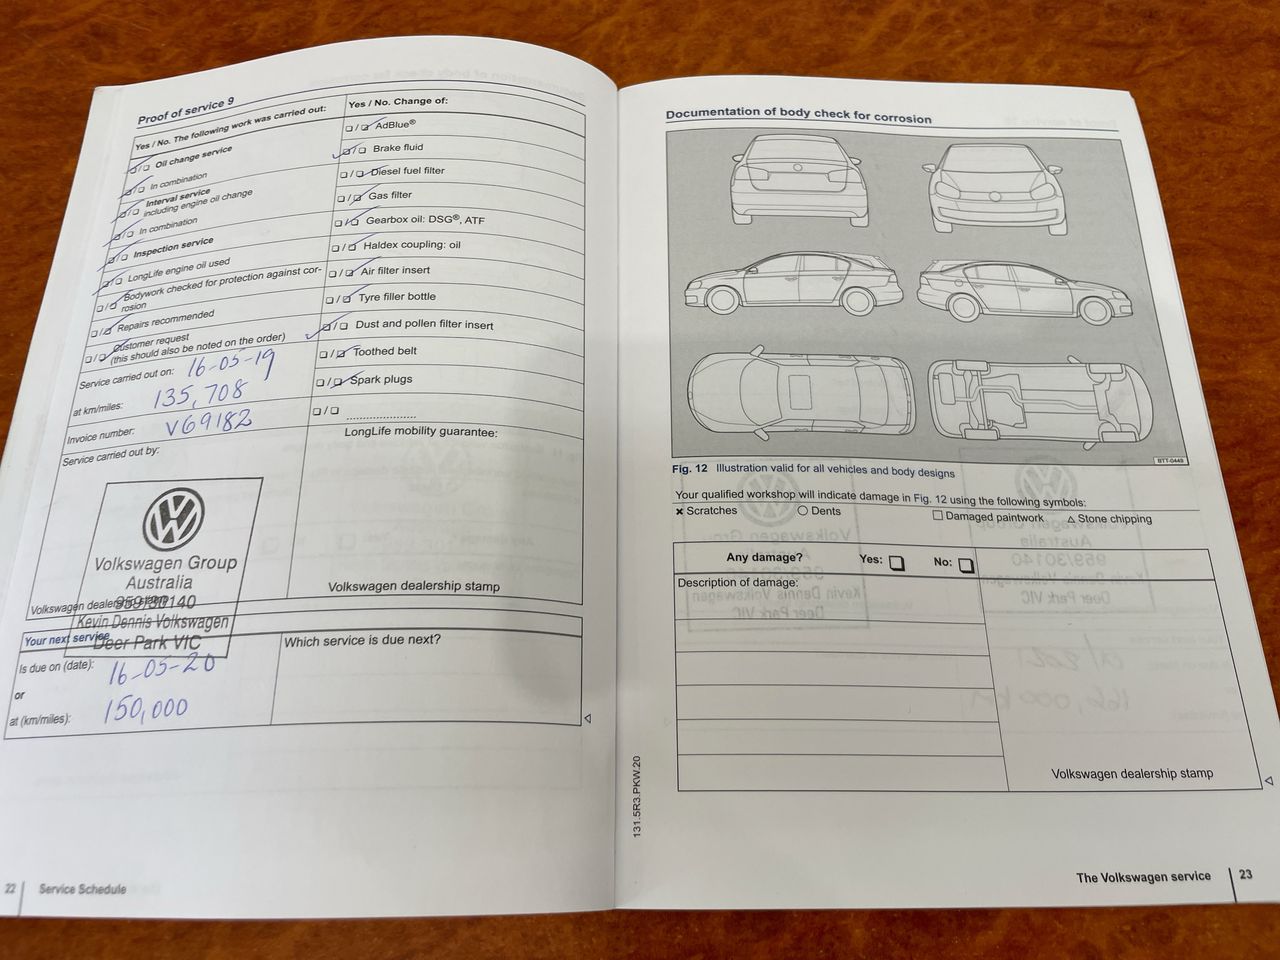 Proof of service 9
Yes / No. The following work was carried out:
❏ / ❏ Oil change service
❏ / ❏ In combination
❏ / ❏ Interval service
including engine oil change
❏ / ❏ In combination
❏ / ❏ Inspection service
❏ / ❏ LongLife engine oil used
❏ / ❏ Bodywork checked for protection against cor-
rosion
❏ / ❏ Repairs recommended
❏ / ❏ Customer request
(this should also be noted on the order)
Service carried out on: 16-05-19
at km/miles: 135,708
Invoice number: V69182
Service carried out by:
Volkswagen Group
Australia
959/30140
Kevin Dennis Volkswagen
Deer Park VIC
Volkswagen dealership stamp
Yes / No. Change of:
❏ / ❏ AdBlue®
❏ / ❏ Brake fluid
❏ / ❏ Diesel fuel filter
❏ / ❏ Gas filter
❏ / ❏ Gearbox oil: DSG®, ATF
❏ / ❏ Haldex coupling: oil
❏ / ❏ Air filter insert
❏ / ❏ Tyre filler bottle
❏ / ❏ Dust and pollen filter insert
❏ / ❏ Toothed belt
❏ / ❏ Spark plugs
❏ / ❏ ....................
LongLife mobility guarantee:
Volkswagen dealership stamp
Your next service
Is due on (date): 16-05-20
or
at (km/miles): 150,000
Which service is due next?
22 Service Schedule
Documentation of body check for corrosion
BTT-0449
Fig. 12 Illustration valid for all vehicles and body designs
Your qualified workshop will indicate damage in Fig. 12 using the following symbols:
× Scratches ○ Dents □ Damaged paintwork △ Stone chipping
Any damage? Yes: ❏ No: ❏
Description of damage:
Volkswagen dealership stamp
131.5R3.PKW.20
The Volkswagen service 23